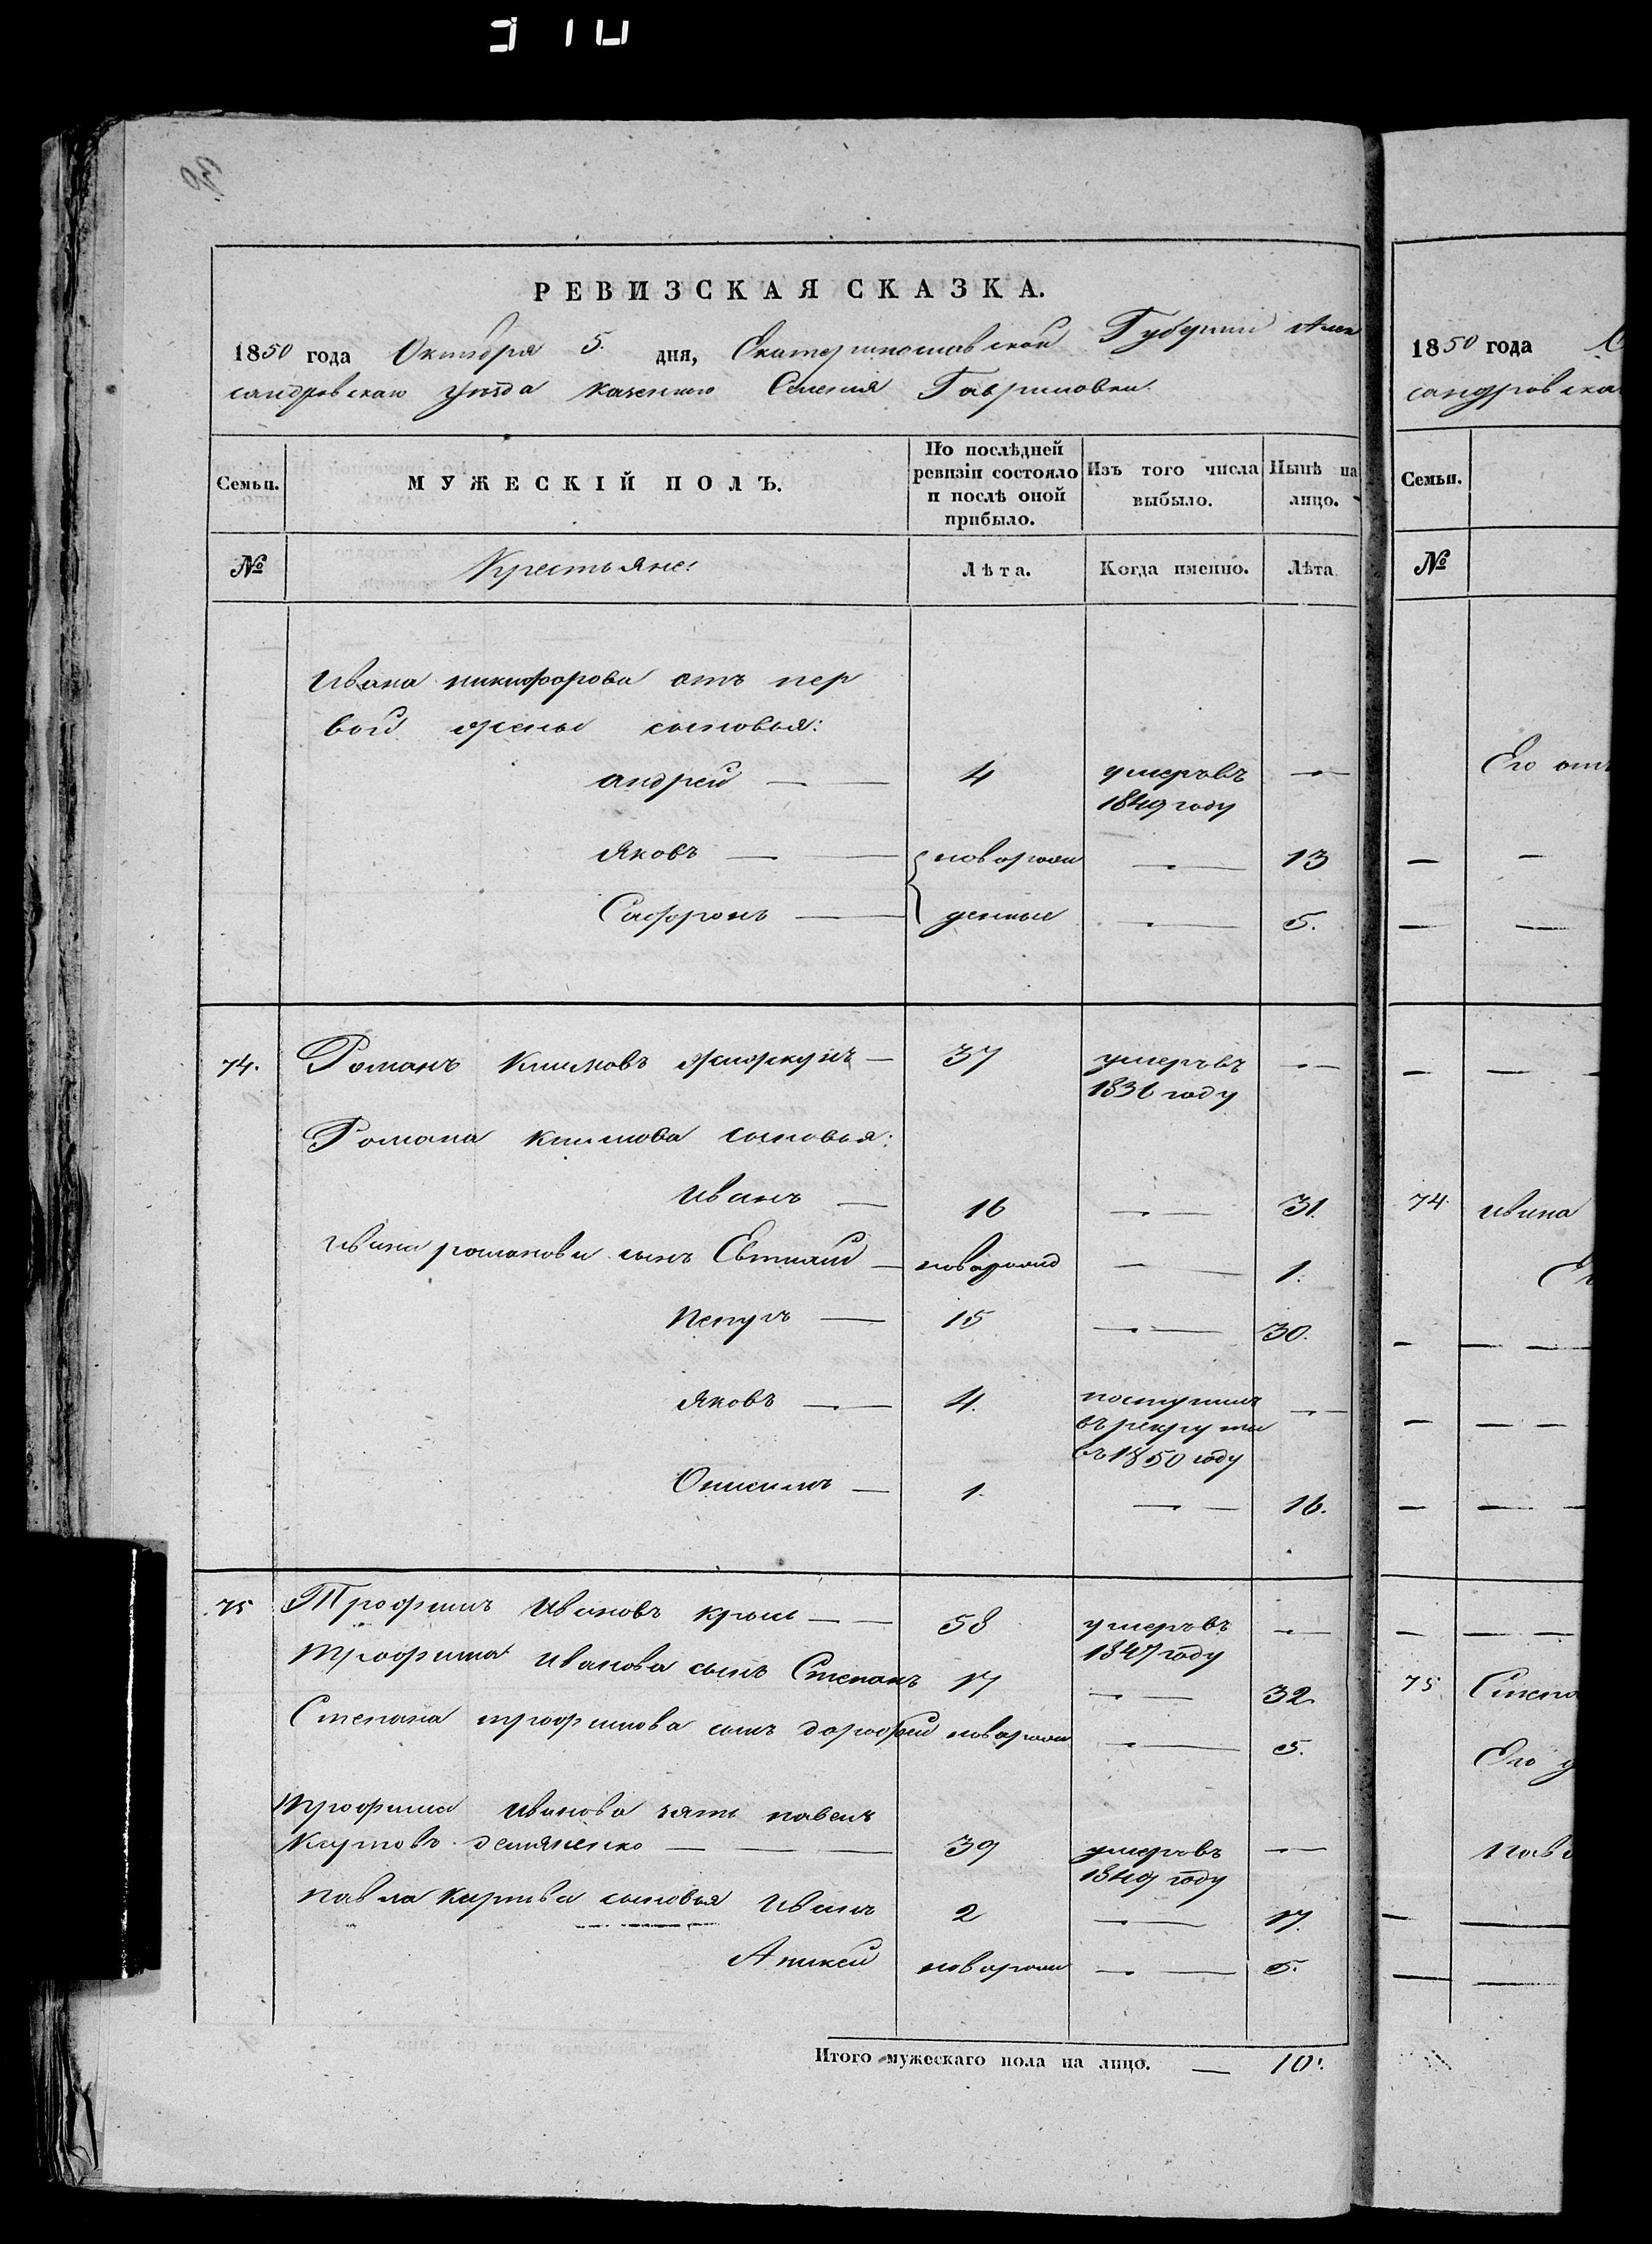 30
РЕВИЗСКАЯ СКАЗКА.
1850 года Октября 5. дня, Екатеринославской Губернии Алек
сандровскаго уѣзда казенного Селения Гавриловки.
Семьи. МУЖЕСКІЙ ПОЛЪ. По послѣдней ревизіи состояло и послѣ оной прибыло. Изъ того числа выбыло. Нынѣ на лицо.
№ Крестьяне: Лѣта. Когда именно. Лѣта
Ивана никифорова отъ пер
вой жены сыновья:
андрей — — 4 умеръ въ —
1849 году
Яковъ — — новорож — 13
Софронъ — денные — 5.
74. Романъ Климовъ — 37 умеръ въ —
1836 году
Романа климова сыновья:
Иванъ — 16 — 31.
Ивана романова сынъ Евтихий — новорожд — 1.
— 15 — 30.
Яковъ — 4. поступилъ —
въ рекруты
въ 1850 году
Онисимъ — 1. — 16.
75 Трофимъ Ивановъ — — 58 умеръ въ —
1847 году
Трофима Иванова сынъ Степанъ 17 — 32.
Степана трофимова сынъ дорофей новорож — 5.
Трофима Иванова зять павелъ
Карповъ демяненко — — — 39 умеръ въ —
1849 году
павла Карпова сыновья Иванъ 2 — 17.
Аникей новорож — 5.
Итого мужескаго пола на лицо. — 10.
1850 года
сандровска
Семьи.
№
Его
74. Ивана
75 Степа
Его
Пав